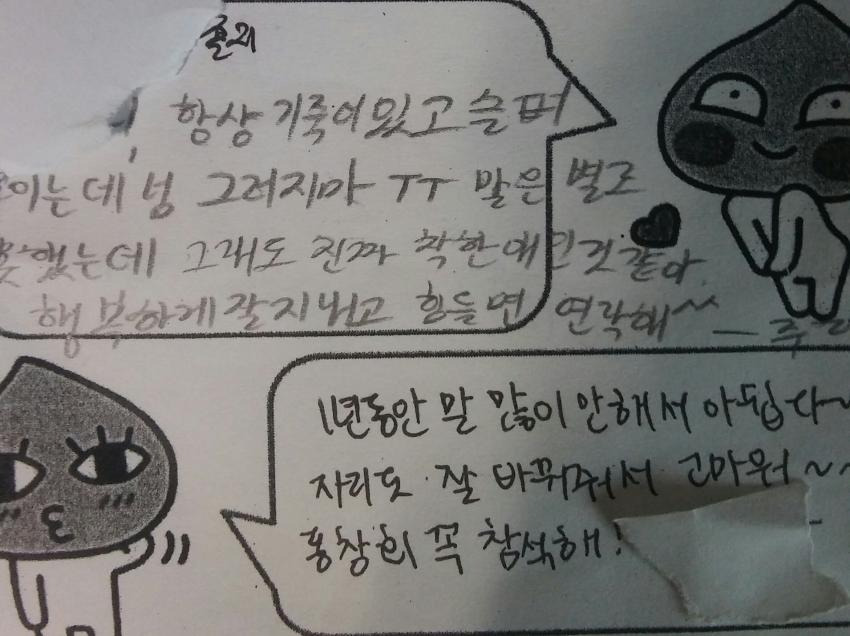 항상 기죽어있고 슬퍼
이는데 넝 그러지마 ㅜㅜ 말은 별로
못했는데 그래도 진짜 착한애인것같아
행복하게 잘지내고 힘들면 연락해~
1년동안 말 많이 안해서 아쉽다~
자리도 잘 바꿔줘서 고마워~~
동창회 꼭 참석해!